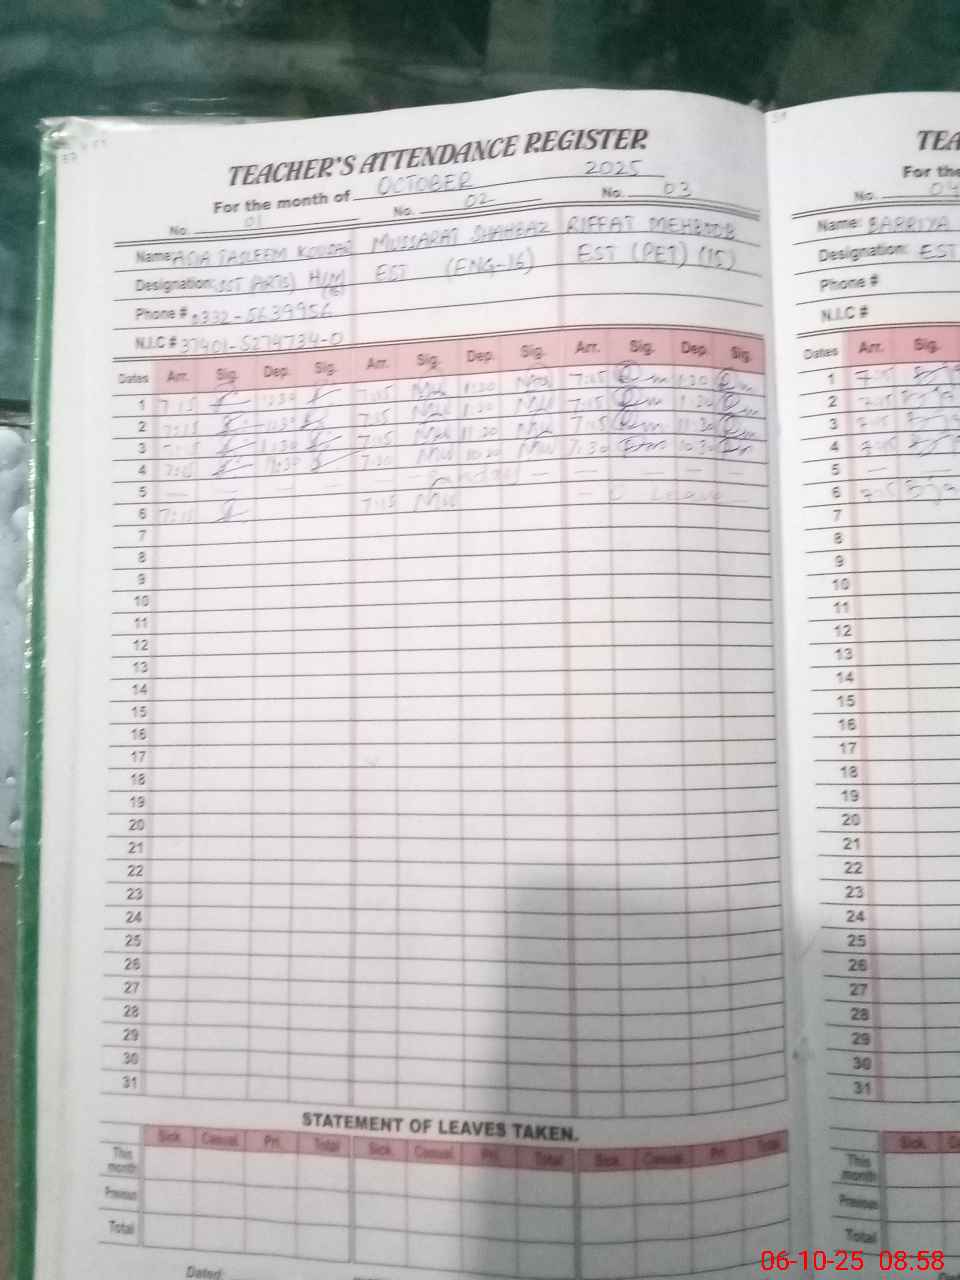 TEACHER'S ATTENDANCE REGISTER
For the month of OCTOBER 2025
No. 01 No. 02 No. 03
Name: ASIA TASLEEM KOUSAR MUSSARAT SHAHBAZ RIFFAT MEHBOOB
Designation: SST (ARTS) H/M (16) EST (ENG-16) EST (PET) (15)
Phone # 0332-5639956
N.I.C # 37401-5274734-0
Dates Arr. Sig. Dep. Sig. Arr. Sig. Dep. Sig. Arr. Sig. Dep. Sig.
1 7:15 1:30 7:15 Mus 1:30 Mus 7:15 1:30
2 7:15 11:30 7:15 Mus 1:30 Mus 7:15 1:30
3 7:15 11:30 7:15 Mus 11:30 Mus 7:15 11:30
4 7:30 10:30 Mus 7:30 10:30
5 — — — — Sunday — — — —
6 7:15 7:15 Mus — Leave —
7
8
9
10
11
12
13
14
15
16
17
18
19
20
21
22
23
24
25
26
27
28
29
30
31
STATEMENT OF LEAVES TAKEN.
Sick. Casual. Pri. Total Sick. Casual. Pri. Total Sick. Casual. Pri. Total
This month
Previous
Total
Dated
TEA
For the
No. 04
Name: BARRIYA
Designation: EST
Phone #
N.I.C #
Dates Arr. Sig.
1 7:15
2 7:15
3 7:15
4 7:15
5 — —
6 7:15
7
8
9
10
11
12
13
14
15
16
17
18
19
20
21
22
23
24
25
26
27
28
29
30
31
Sick.
This month
Previous
Total
06-10-25 08:58